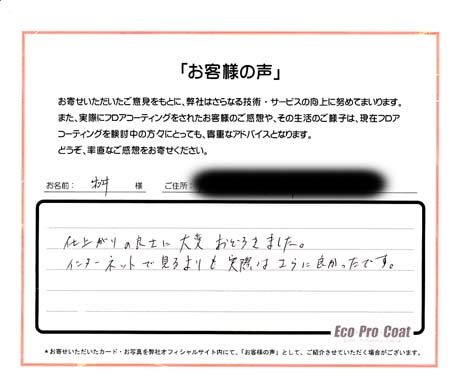 「お客様の声」
お寄せいただいたご意見をもとに、弊社はさらなる技術・サービスの向上に努めてまいります。
また、実際にフロアコーティングをされたお客様のご感想や、その生活のご様子は、現在フロア
コーティングを検討中の方々にとっても、貴重なアドバイスとなります。
どうぞ、率直なご感想をお寄せください。
お名前： 様 ご住所：
仕上がりの良さに大変おどろきました。
インターネットで見るよりも実際はさらに良かったです。
Eco Pro Coat
＊お寄せいただいたカード・お写真を弊社オフィシャルサイト内にて、「お客様の声」として、ご紹介させていただく場合がございます。